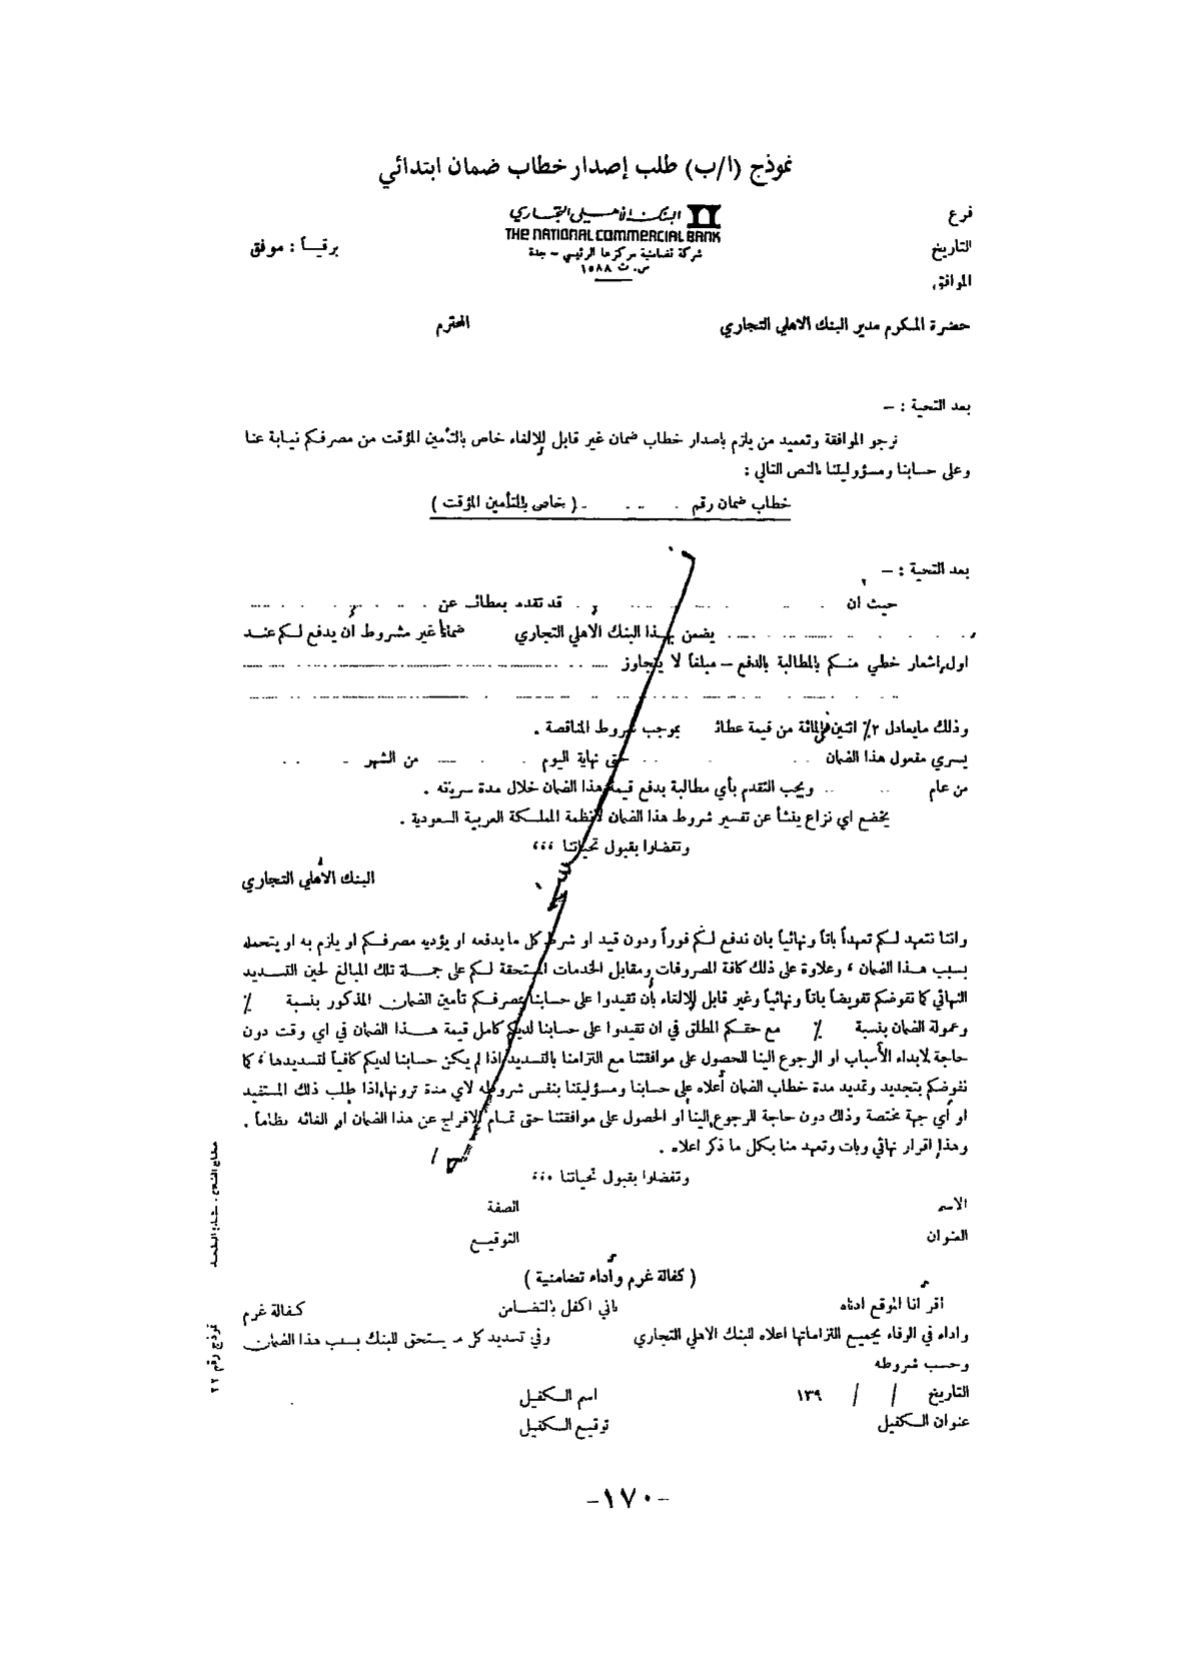 نموذج (ا/ب) طلب إصدار خطاب ضمان ابتدائي
البنك الأهلي التجاري
THE NATIONAL COMMERCIAL BANK
شركة تضامنية مركزها الرئيسي – جدة
س. ت ١٥٨٨
فرع
التاريخ
برقياً : موفق
الموافق
حضرة المكرم مدير البنك الاهلي التجاري المحترم
بعد التحية : –
نرجو الموافقة وتعميد من يلزم باصدار خطاب ضمان غير قابل للإلغاء خاص بالتأمين المؤقت من مصرفكم نيابة عنا
وعلى حسابنا ومسؤوليتنا بالنص التالي :
خطاب ضمان رقم . .. . ( خاص بالتأمين المؤقت )
بعد التحية : –
حيث ان ........ قد تقدم بعطائـ عن ........
........ يضمن بهذا البنك الاهلي التجاري ضماناً غير مشروط أن يدفع لكم عند
اول إشعار خطي منكم بالمطالبة بالدفع – مبلغاً لا يتجاوز ........
........
وذلك مايعادل ٢٪ اثنين في المائة من قيمة عطائـ بموجب شروط المناقصة .
يسري مفعول هذا الضمان .. . حتى نهاية اليوم . . .... من الشهر . . .
من عام .. .. ويجب التقدم بأي مطالبة بدفع قيمة هذا الضمان خلال مدة سريانه .
يخضع اي نزاع ينشأ عن تفسير شروط هذا الضمان لأنظمة المملكة العربية السعودية .
وتفضلوا بقبول تحياتنا ،،،
البنك الأهلي التجاري
واننا نتعهد لكم تعهداً باتاً ونهائياً بان ندفع لكم فوراً ودون قيد او شرط كل ما يدفعه او يؤديه مصرفكم او يلزم به او يتحمله
بسبب هذا الضمان ، وعلاوة على ذلك كافة المصروفات ومقابل الخدمات المستحقة لكم على جملة تلك المبالغ لحين التسديد
النهائي كما نفوضكم تفويضاً باتاً ونهائياً وغير قابل للإلغاء بأن تقيدوا على حسابنا بمصرفكم تأمين الضمان المذكور بنسبة ٪
وعمولة الضمان بنسبة ٪ مع حقكم المطلق في ان تقيدوا على حسابنا لديكم كامل قيمة هذا الضمان في اي وقت دون
حاجة لابداء الأسباب او الرجوع الينا للحصول على موافقتنا مع التزامنا بالتسديد اذا لم يكن حسابنا لديكم كافياً لتسديدها ، كما
نفوضكم بتجديد وتمديد مدة خطاب الضمان أعلاه على حسابنا ومسؤليتنا بنفس شروطه لاي مدة ترونها إذا طلب ذلك المستفيد
او أي جهة مختصة وذلك دون حاجة للرجوع إلينا أو الحصول على موافقتنا حتى تمام الافراج عن هذا الضمان او الغائه نظاماً .
وهذا اقرار نهائي وبات وتعهد منا بكل ما ذكر اعلاه .
وتفضلوا بقبول تحياتنا ،،،
الاسم الصفة
العنوان التوقيع
( كفالة غرم وأداء تضامنية )
أقر انا الموقع ادناه باني اكفل بالتضامن كفالة غرم
واداء في الوفاء بجميع التزاماتها اعلاه للبنك الاهلي التجاري وفي تسديد كل ما يستحق للبنك بسبب هذا الضمان
وحسب شروطه
التاريخ / / ١٣٩ اسم الكفيل
عنوان الكفيل توقيع الكفيل
نموذج رقم ٢٢
-١٧٠-